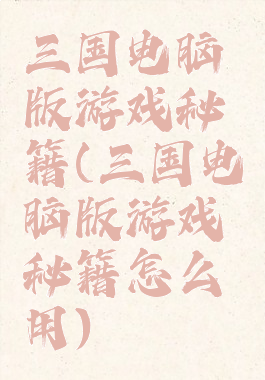 三国电脑
版游戏秘
籍(三国电
脑版游戏
秘籍怎么
用)